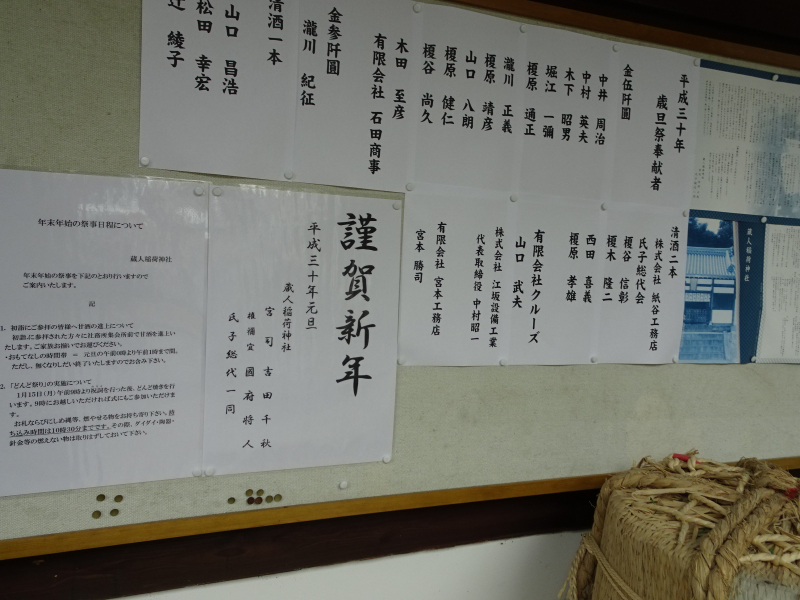 平成三十年
歳旦祭奉献者
金伍阡圓
中井 周治
中村 英夫
木下 昭男
堀江 一彌
榎原 通正
瀧川 正義
榎原 靖彦
山口 八朗
榎原 健仁
榎谷 尚久
木田 至彦
有限会社 石田商事
金参阡圓
瀧川 紀征
清酒一本
山口 昌浩
松田 幸宏
辻 綾子
清酒二本
株式会社 紙谷工務店
氏子総代会
榎谷 信彰
榎木 隆二
西田 喜義
榎原 孝雄
有限会社クルーズ
山口 武夫
株式会社 江坂設備工業
代表取締役 中村昭一
有限会社 宮本工務店
宮本 勝司
蔵人稲荷神社
謹賀新年
平成三十年元旦
蔵人稲荷神社
宮司 吉田千秋
権禰宜 國府将人
氏子総代一同
年末年始の祭事日程について
蔵人稲荷神社
年末年始の祭事を下記のとおり行いますので
ご案内いたします。
記
1．初詣にご参拝の皆様へ甘酒の進上について
初詣に参拝された方々に社務所集会所前で甘酒を進上い
たします。ご家族お揃いでお運びください。
・おもてなしの時間帯 ＝ 元旦の午前0時より午前1時まで間。
ただし、無くなりしだい終了いたしますのでお含み下さい。
2．「どんど祭り」の実施について
1月15日(月)午前9時より祝詞を行った後、どんど焼きを行
います。9時にお越しいただければ式にもご参加いただけま
す。
お札ならびにしめ縄等、燃やせる物をお持ち寄り下さい。持
ち込み時間は10時30分までです。その際、ダイダイ・陶器・
針金等の燃えない物は取りはずしておいて下さい。